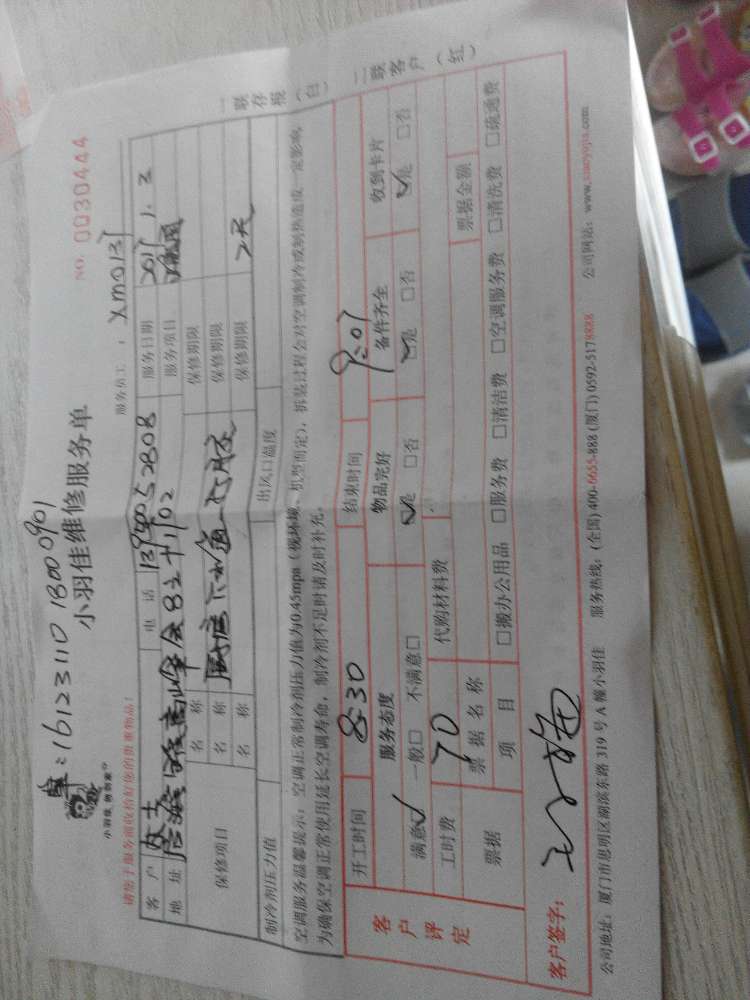 单:16123110 18000901
小羽佳维修服务单
NO. 0030444
小羽佳, 教到家
请您于服务前收拾好您的贵重物品!
服务员工: xm0131
客户 女士 电话 1390052808 服务日期 1.2
地址 82 1102 服务项目
保修项目
名称 保修期限
名称 厨房下水道 保修期限
名称 保修期限 2天
制冷剂压力值 出风口温度
空调服务温馨提示:空调正常制冷剂压力值为0.45mpa(视环境、机型而定),拆装过程会对空调制冷或制热造成一定影响,
为确保空调正常使用延长空调寿命,制冷剂不足时请及时补充。
一联存根(白) 二联客户(红)
客户评定
开工时间 8:30 结束时间 9:01
满意 一般□ 服务态度 不满意□
物品完好 □是 □否
备件齐全 □是 □否
收到卡片 □是 □否
工时费 70 代购材料费
票据 票据名称 票据金额
项目 □搬办公用品 □服务费 □清洁费 □空调服务费 □清洗费 □疏通费
客户签字:
公司地址:厦门市思明区湖滨东路 319 号 A 幢小羽佳 服务热线:(全国) 400-6655-888 (厦门) 0592-5178888 公司网站:www.xiaoyujia.com